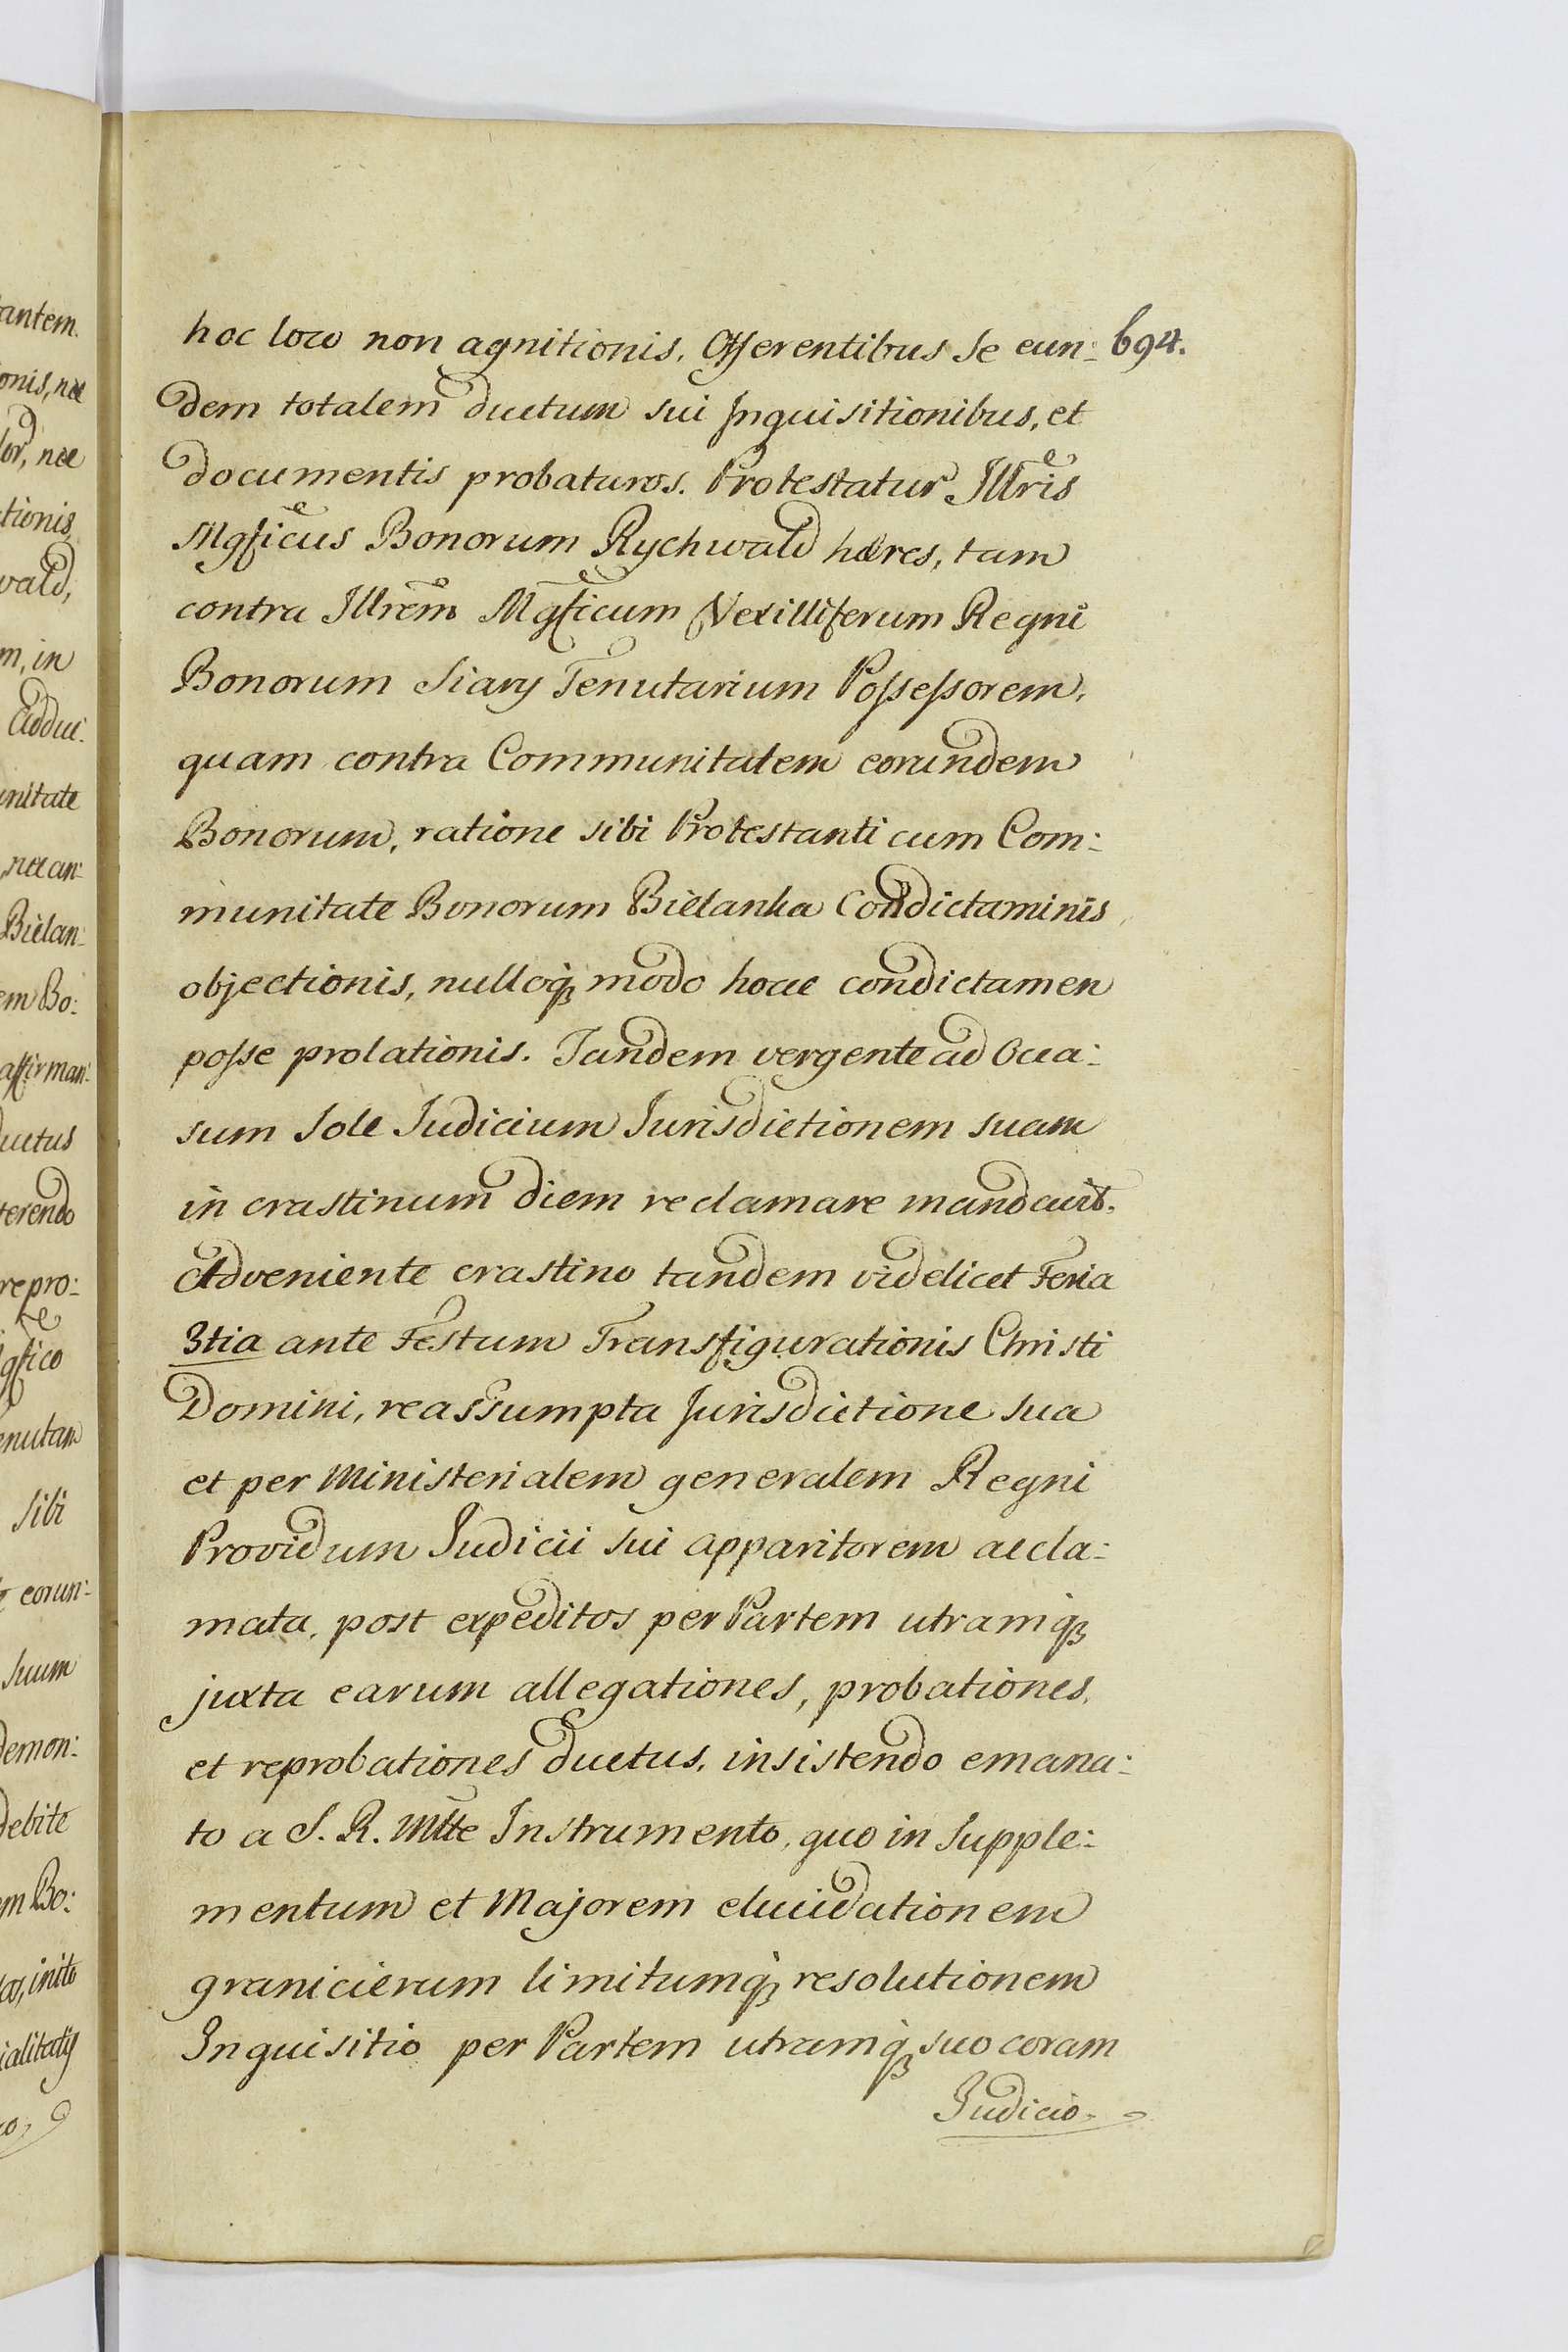 hoc loco non agnitionis. Offerentibus se eun: 694.
dem totalem ductum sui Inquisitionibus, et
documentis probaturos. Protestatur Illris
Mgficus Bonorum Rychwald hæres, tam
contra Illrem Mgficum Vexilliferum Regni
Bonorum Siary Tenutarium Possessorem,
quam contra Communitatem eorundem
Bonorum, ratione sibi Protestanti cum Com:
munitate Bonorum Bielanka Condictaminis
objectionis, nulloq3 modo hocce condictamen
posse prolationis. Tandem vergente ad Occa:
sum Sole Judicium Jurisdictionem suam
in crastinum diem reclamare mandavit.
Adveniente crastino tandem videlicet Feria
3tia ante Festum Transfigurationis Christi
Domini, reassumpta Jurisdictione sua
et per Ministerialem generalem Regni
Providum Judicii sui apparitorem accla:
mata, post expeditos per Partem utramq3
juxta earum allegationes, probationes,
et reprobationes ductus, insistendo emana:
to a S. R. Mtte Instrumento, quo in Supple:
mentum et Majorem elucidationem
granicierum limitumq3 resolutionem
Inquisitio per Partem utramq3 suo coram
Judicio
antem
onis, nec
lor, nec
tionis
vald,
m, in
Adduc:
unitate
nec an:
Bielan:
em Bo:
affirman:
ductus
terendo
repro:
gfico
enutam
sibi
eorun:
suum
demon:
debite
em Bo:
os, inito
ialitatis